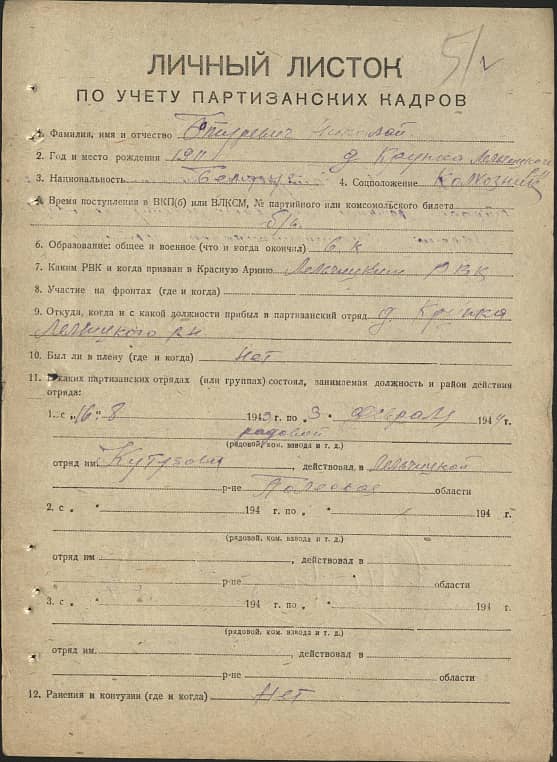 5/
ЛИЧНЫЙ ЛИСТОК
ПО УЧЕТУ ПАРТИЗАНСКИХ КАДРОВ
1. Фамилия, имя и отчество Николай
2. Год и место рождения 1911 д.
3. Национальность 4. Соцположение Колхозник
5. Время поступления в ВКП(б) или ВЛКСМ, № партийного или комсомольского билета
б/п
6. Образование: общее и военное (что и когда окончил) 6 к
7. Каким РВК и когда призван в Красную Армию Лельчицким РВК
8. Участие на фронтах (где и когда)
9. Откуда, когда и с какой должности прибыл в партизанский отряд д.
рн
10. Был ли в плену (где и когда) Нет
11. В каких партизанских отрядах (или группах) состоял, занимаемая должность и район действия
отряда:
1. с „16 „ 8 1943 г. по „ 3 " февраля 1944 г.
рядовой
(рядовой, ком. взвода и т. д.)
отряд им. Кутузова, действовал в Лельчицкой
р-не Полеская области
2. с „ " 194 г. по „ " 194 г.
(рядовой, ком. взвода и т. д.)
отряд им , действовал в
р-не области
3. с „ " 194 г. по „ " 194 г.
(рядовой, ком. взвода и т. д.)
отряд им. , действовал в
р-не области
12. Ранения и контузии (где и когда) Нет